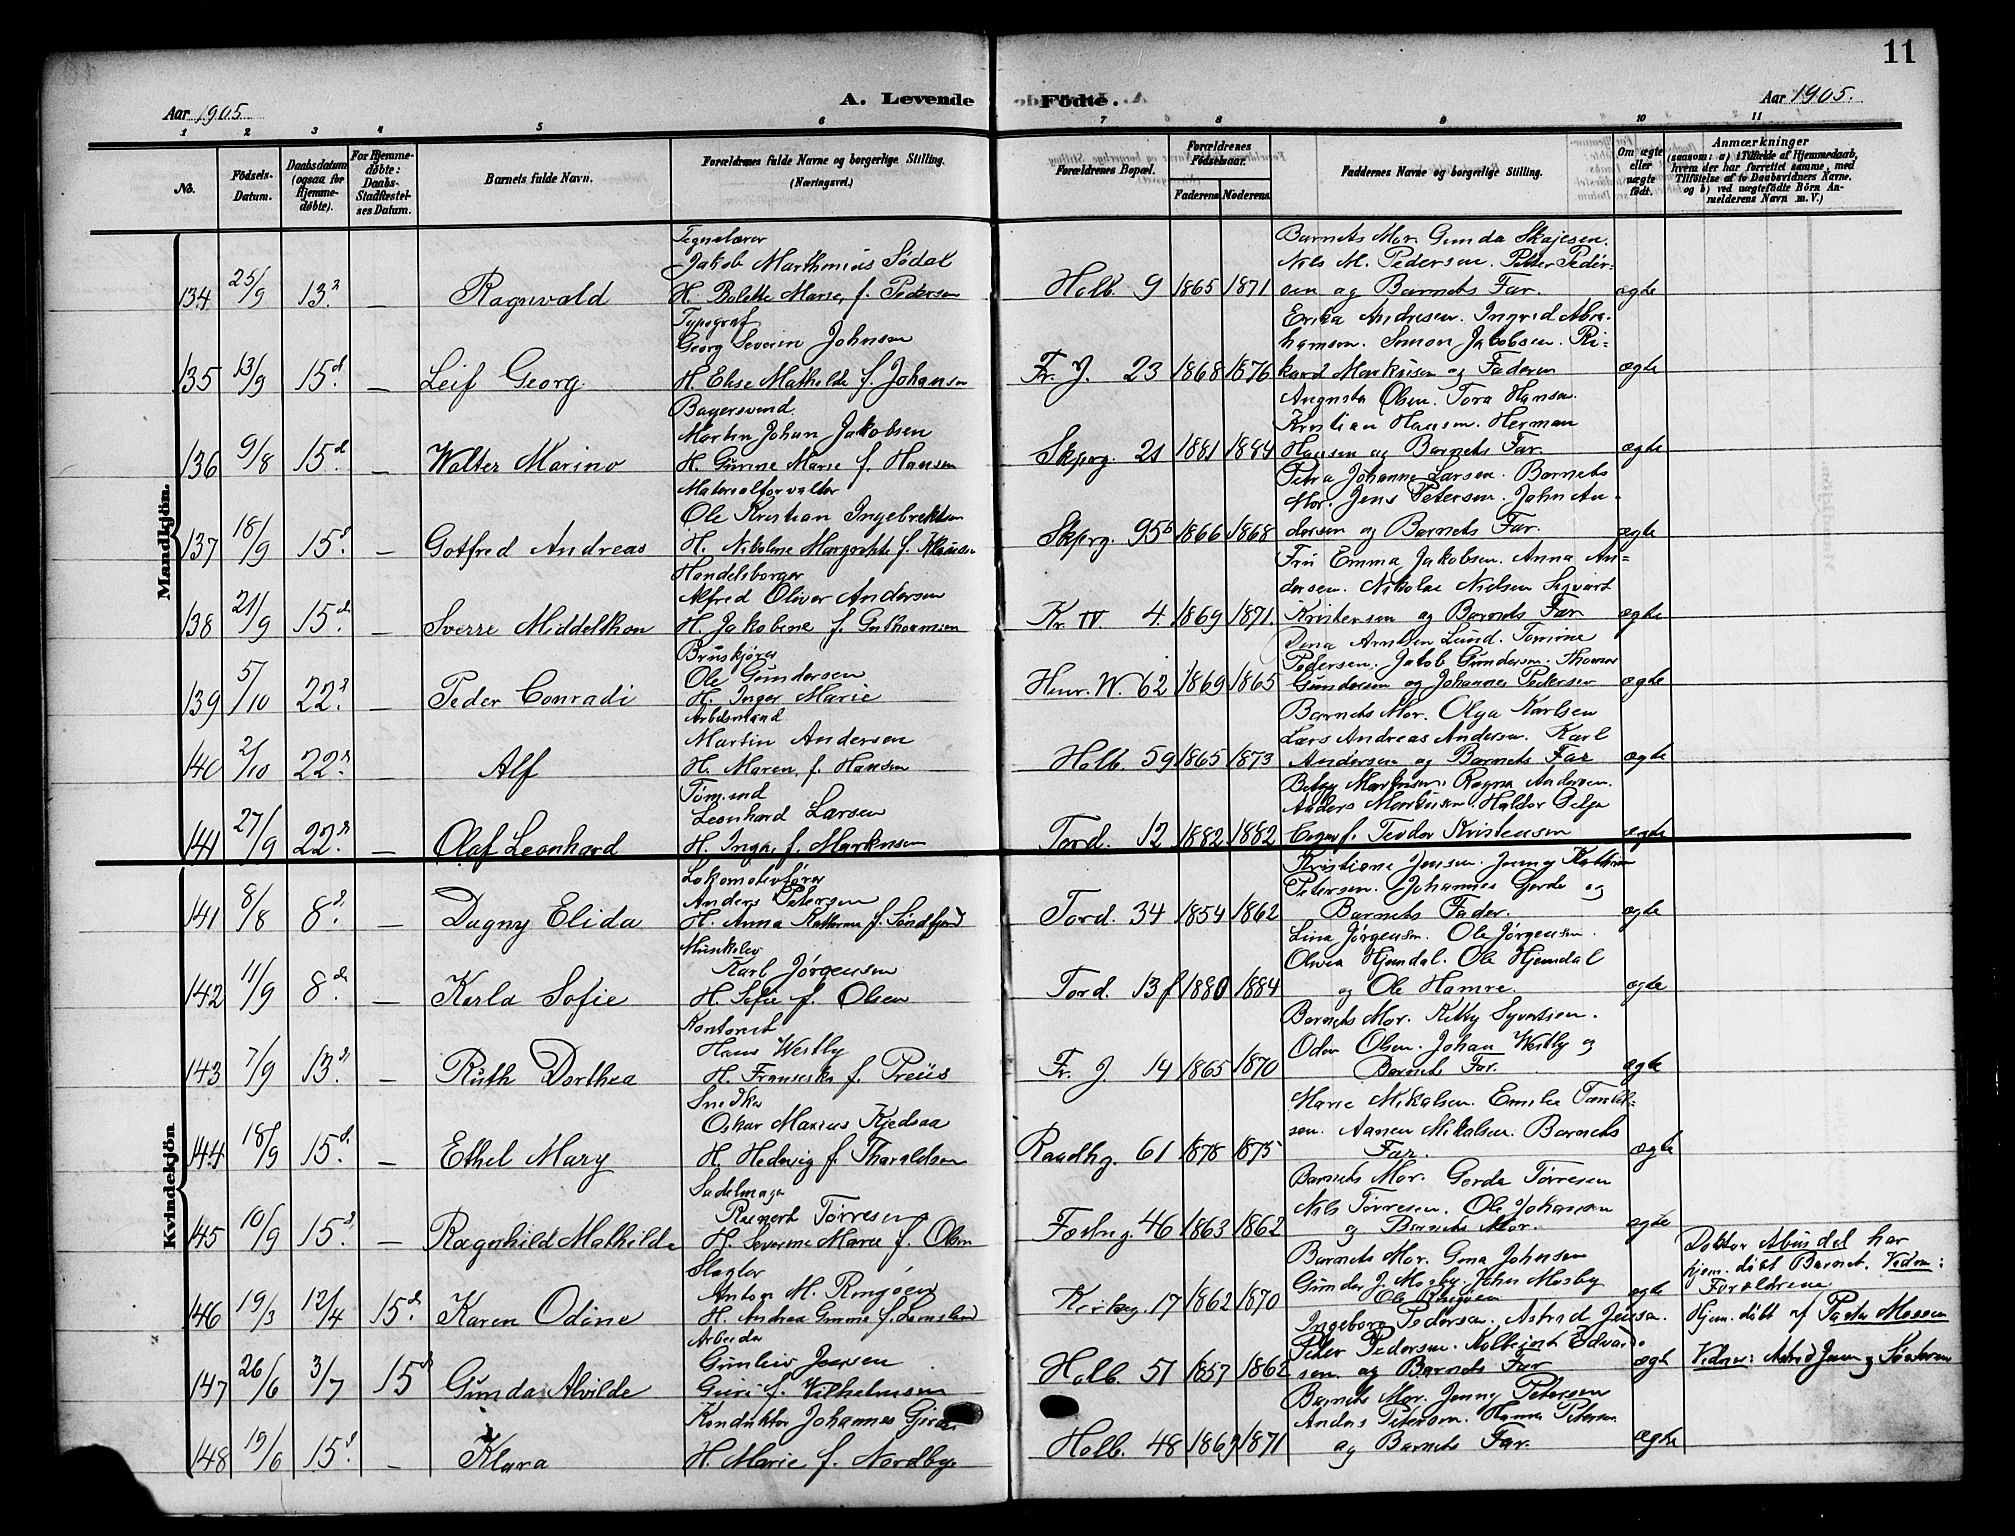 11
Aar 1905.
A. Levende
Födte.
Aar 1905.
1 2 3 4 5 6 7 8 9 10 11
No.
Födsels-Datum.
Daabsdatum (ogsaa for Hjemme-döbte).
For Hjemme-döbte: Daabs-Stadfæstel-ses Datum.
Barnets fulde Navn.
Forældrenes fulde Navne og borgerlige Stilling. (Næringsvei.)
Forældrenes Bopæl.
Forældrenes Födselsaar.
Faderens. Moderens.
Faddernes Navne og borgerlige Stilling.
Om ægte eller uægte födt.
Anmærkninger
(saasom: a) i Tilfælde af Hjemmedaab, hvem der har forrettet samme, med Tilföielse af to Daabsvidners Navne. og b) ved uægtefödte Börn An-melderens Navn m. V.)
Mandkjön.
134 25/9 13. – Ragnvald
Tegnelærer
Jakob Marthinius Sødal
H. Bolette Marie, f. Pedersen
Holb. 9 1865 1871
Barnets Mor. Gunda Skajesen.
Nils M. Pedersen. Petter Peder-
sen og Barnets Far.
ægte
135 13/9 15. – Leif Georg
Typograf
Georg Severin Johnsen
H. Elise Mathilde f. Johansen
Fr. J. 23 1868 1876
Erika Andresen. Ingrid Abra-
hamsen. Simon Jakobsen. Ri-
kard Markusen og Faderen
ægte
136 9/8 15. – Walter Marino
Bagersvend.
Martin Johan Jakobsen
H. Gunine Marie f. Hansen
Skprg. 21 1881 1884
Augusta Olsen. Tora Hansen.
Kristian Hansen. Herman
Hansen og Barnets Far.
ægte
137 18/9 15. – Gotfred Andreas
Materialforvalter
Ole Kristian Ingebrektsen
H. Nikoline Margrethe f. Klausen
Skprg. 95b 1866 1868
Petra Johanne Larsen. Barnets
Mor. Jens Petersen. John An-
dersen og Barnets Far.
ægte
138 21/9 15. – Sverre Middelthon
Handelsborger
Alfred Oliver Andersen
H. Jakobine f. Guthormsen
Kr. IV. 4 1869 1871.
Fru Emma Jakobsen. Anna An-
dersen. Nikolai Nielsen Sigvart
Kristensen og Barnets Far
ægte
139 5/10 22. – Peder Conradi
Bruskjører
Ole Gundersen
H. Inger Marie
Henr. W. 62 1869 1865
Dina Arntsen Lund. Tomine
Pedersen. Jakob Gundersen. Thomas
Gundersen og Johannes Pedersen
ægte
140 2/10 22. – Alf
Arbeidsmand
Martin Andersen
H. Maren, f. Hansen
Holb. 59 1865 1873
Barnets Mor. Olga Karlsen
Lars Andreas Andersen. Karl
Andersen og Barnets Far
ægte
141 27/9 22. – Olaf Leonhard
Tøm.svd
Leonhard Larsen
H. Inga, f. Markusen
Tord. 12 1882 1882
Betsy Markusen. Ragna Andersen.
Anders Markusen. Haldor
Teodor Kristensen
ægte
Kvindekjön
141 8/8 8. – Dagny Elida
Lokomotivfører
Anders Petersen
H. Anna Katherine f. Søndfjord
Tord. 34 1854 1862
Kristiane Jensen. Jenny Kathrine
Petersen. Johannes Gjerde og
Barnets Fader.
ægte
142 11/9 8. – Karla Sofie
Musikelev
Karl Jørgensen
H. Sofie f. Olsen
Tord. 13f 1880 1884
Lina Jørgensen. Ole Jørgensen.
Olivia Hjemdal. Ole Hjemdal
og Ole Hamre.
ægte
143 7/9 13. – Ruth Dorthea
Kontorist
Hans Westby
H. Franciska f. Preüs
Fr. J. 14 1865 1870
Barnets Mor. Kitty Syvertsen.
Odin Olsen. Johan Westby og
Barnets Far.
ægte
144 18/9 15. – Ethel Mary
Snedker
Oskar Marius Kjedsaa
H. Hedevig f. Tharaldsen
Raadhg. 61 1878 1875
Marie Mikalsen. Emilie
sen. Aanen Mikalsen. Barnets
Far.
ægte
145 10/9 15. – Ragnhild Mathilde
Sadelmager
Reinert Tørresen
H. Severine Marie f. Olsen
Fæstng. 46 1863 1862
Barnets Mor. Gerda Tørresen
Nils Tørresen. Ole Johansen
og Barnets Mor.
ægte
146 19/3 12/4 15. Karen Odine
Slagter
Anton M. Ringøen
H. Andrea Gunine f.
Kirkeg. 17 1862 1870
Barnets Mor. Gina Johnsen
Gunda J. Mosby. John Mosby
Ole Ringøen
ægte
Doktor Abusdal har
hjem. døbt Barnet. Vidn:
Forældrene
147 26/6 3/7 15 Gunda Alvilde
Arbeider
Gunleiv Jensen
Guri f. Vilhelmsen
Holb. 51 1857 1862
Ingeborg Pedersen. Astrid Jensen.
Peter Pedersen. Kolbeint Edvard-
sen og Barnets Far
ægt
Hjem. døbt af Pastor Mossen
Vidner: Astrid Jensen og
148 19/6 15. – Klara
Konduktør Johannes Gjerde
H. Marie f. Nordby
Holb. 48 1869 1871
Barnets Mor. Jenny Petersen
Anders Petersen. Hanna Petersen
og Barnets Far.
ægte